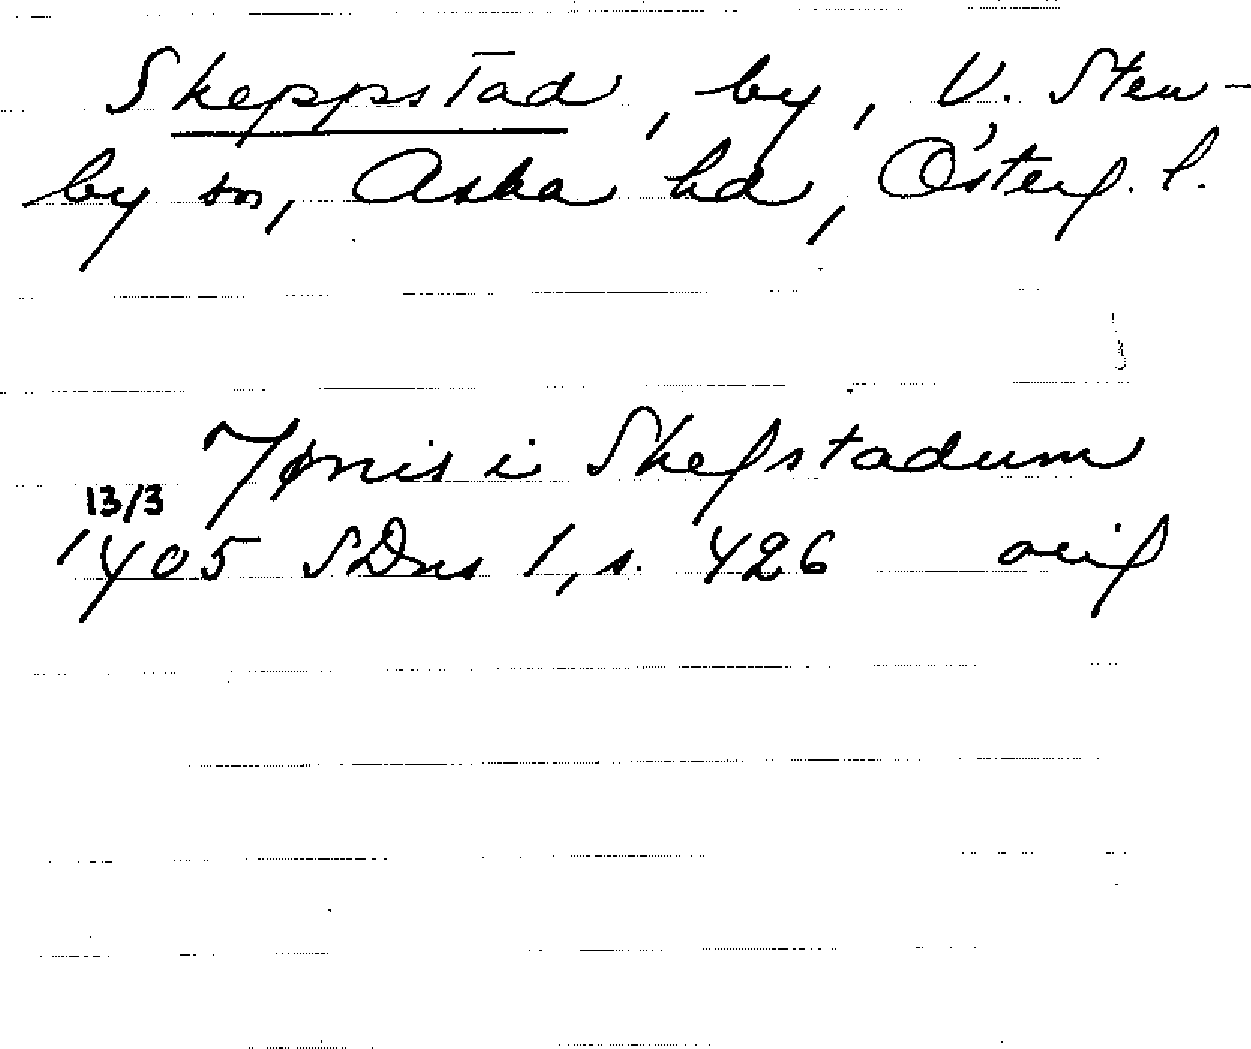 Skeppstad, by, V. Sten-
by sn, Aska hd, Österg. l.
Tønis i Skefstadum
13/3
1405 SDns 1, s. 426 orig